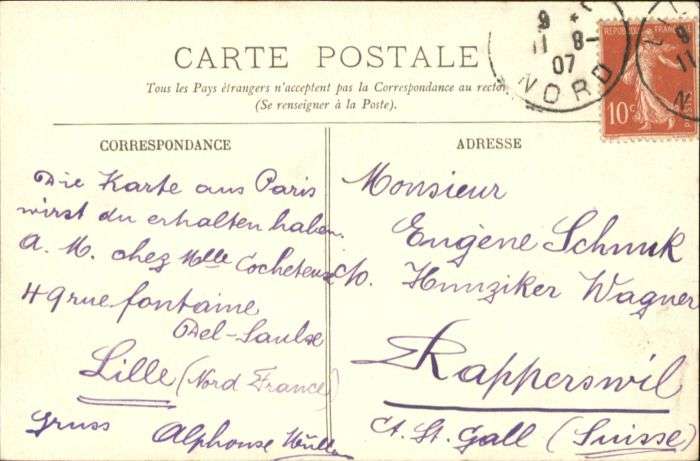 CARTE POSTALE
Tous les Pays étrangers n'acceptent pas la Correspondance au recto
(Se renseigner à la Poste).
CORRESPONDANCE
Die Karte aus Paris
wirst du erhalten haben.
A. M. chez Mlle
49 rue fontaine
Del-Saulse
Lille (Nord France)
Gruss Alphonse
ADRESSE
Monsieur
Eugène Schmuk
c/o. Hunziker Wagner
Rapperswil
Ct. St. Gall (Suisse)
REPUBLIQUE
10c
8-
07
NORD